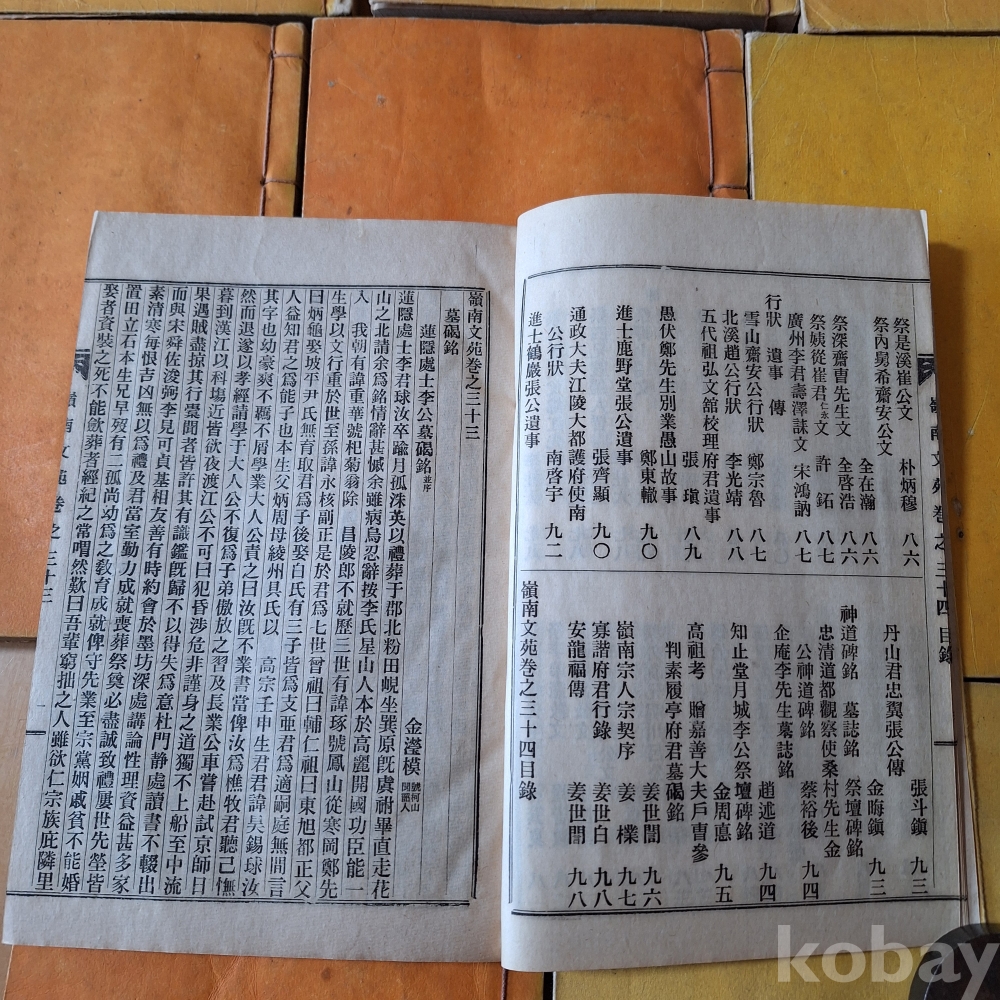 嶺南文苑卷之三十四 目錄
祭是溪崔公文 朴炳穆 八六
祭內舅希齋安公文 全在瀚 八六
祭深齋曺先生文 全啓浩 八六
祭姨從崔君文 許鉐 八七
廣州李君壽澤誄文 宋鴻訥 八七
行狀 遺事 傳
雪山齋安公行狀 鄭宗魯 八七
北溪趙公行狀 李光靖 八八
五代祖弘文舘校理府君遺事
張瑱 八九
愚伏鄭先生別業愚山故事
鄭東轍 九〇
進士鹿野堂張公遺事
張齊顯 九〇
通政大夫江陵大都護府使南
公行狀 南啓宇 九二
進士鶴巖張公遺事
張斗鎭 九三
丹山君忠翼張公傳
金晦鎭 九三
神道碑銘 墓誌銘 祭壇碑銘
忠清道都觀察使桑村先生金
公神道碑銘 蔡裕後 九四
企庵李先生墓誌銘
趙述道 九四
知止堂月城李公祭壇碑銘
金周悳 九五
高祖考 贈嘉善大夫戶曺參
判素履亭府君墓碣銘
姜世誾 九六
嶺南宗人宗契序 姜 九七
寡諧府君行錄 姜世白 九八
安龍福傳 姜世誾 九八
嶺南文苑卷之三十四目錄
嶺南文苑卷之三十三
墓碣銘
蓮隱處士李公墓碣銘 並序 金瀅模 號柯山 聞韶人
蓮隱處士李君球汝卒踰月孤洙英以禮葬于郡北粉田峴坐巽原旣虞祔畢直走花
山之北請余爲銘情辭甚慽余雖病烏忍辭按李氏星山人本於高麗開國功臣能一
入 我朝有諱重華號杞菊翁除 昌陵郎不就歷三世有諱琢號鳳山從寒岡鄭先
生學以文行重於世至孫諱永核副正是於君爲七世曾祖曰輔仁祖曰東旭都正父
曰炳龜娶坡平尹氏無育取君爲子後娶白氏有三子皆爲支亜君爲適嗣庭無間言
人益知君之爲能子也本生父炳周母綾州具氏以 高宗壬申生君君諱吳錫球汝
其字也幼豪爽不羈不屑學業大人公責之曰汝旣不業書當俾汝爲樵牧君聽已憮
然而退遂以孝經請學于大人公不復爲子弟傲放之習及長業公車嘗赴試京師日
暮到漢江以科場近皆欲夜渡江公不可曰犯昏涉危非謹身之道獨不上船至中流
果遇賊盡掠其行橐聞者皆許其有識鑑旣歸不以得失爲意杜門静處讀書不輟出
而與宋舜佐浚弼李見可貞基相友善有時約會於墨坊深處講論性理資益甚多家
素清寒每恨吉凶無以爲禮及君當室動力成就喪葬祭奠必盡誠致禮屢世先塋皆
置田立石本生兄早歿有二孤尚幼爲之敎育成就俾守先業至宗黨姻戚貧不能婚
娶者資裝之死不能斂葬者經紀之常喟然歎曰吾輩窮拙之人雖欲仁宗族庇隣里
嶺南文苑 卷之三十三
一
kobay